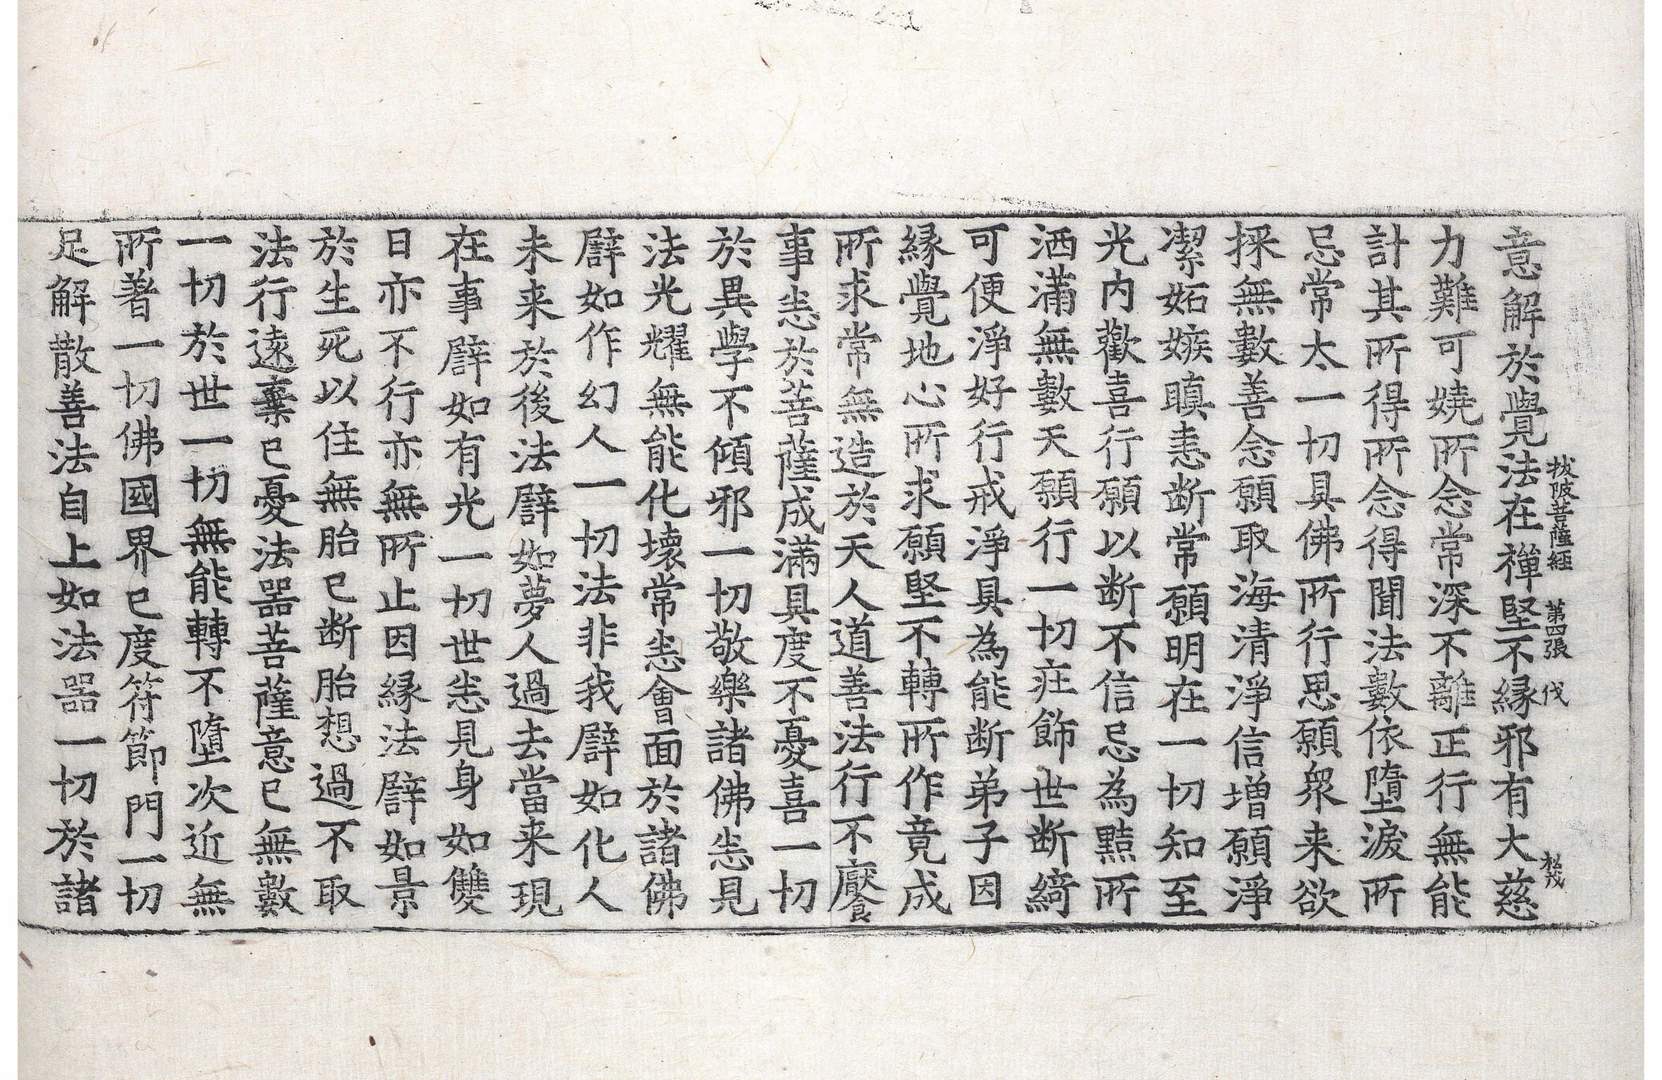 拔陂菩薩經　第四張　伐
意解於覺法在禪堅不緣邪有大慈
力難可嬈所念常深不離正行無能
計其所得所念得聞法數依墮淚所
忌常太一切具佛所行思願衆来欲
採無數善念願取海清淨信增願淨
潔妬嫉瞋恚断常願明在一切知至
光內歡喜行願以断不信忌為黠所
洒滿無數天願行一切㽵飾世断綺
可便淨好行戒淨具為能断弟子因
緣覺地心所求願堅不轉所作竟成
所求常無造於天人道善法行不饜
事恚於菩薩成滿具度不憂喜一切
於異學不傾邪一切敬樂諸佛恚見
法光耀無能化壞常恚會面於諸佛
譬如作幻人一切法非我譬如化人
未来於後法譬如夢人過去當来現
在事譬如有光一切世恚見身如雙
日亦不行亦無所止因緣法譬如景
於生死以住無胎已断胎想過不取
法行遠棄已憂法器菩薩意已無數
一切於世一切無能轉不墮次近無
所著一切佛國界已度符節門一切
足解散善法自上如法器一切於諸